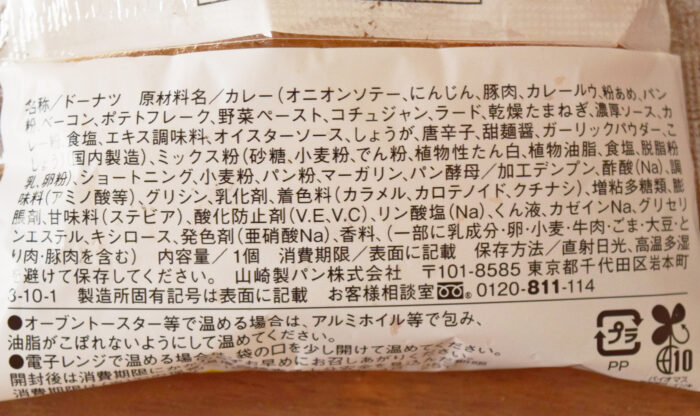 名称／ドーナツ 原材料名／カレー（オニオンソテー、にんじん、豚肉、カレールウ、粉あめ、パン
粉、ベーコン、ポテトフレーク、野菜ペースト、コチュジャン、ラード、乾燥たまねぎ、濃厚ソース、カ
レー粉、食塩、エキス調味料、オイスターソース、しょうが、唐辛子、甜麺醤、ガーリックパウダー、こ
しょう）（国内製造）、ミックス粉（砂糖、小麦粉、でん粉、植物性たん白、植物油脂、食塩、脱脂粉
乳、卵粉）、ショートニング、小麦粉、パン粉、マーガリン、パン酵母／加工デンプン、酢酸（Na）、調
味料（アミノ酸等）、グリシン、乳化剤、着色料（カラメル、カロテノイド、クチナシ）、増粘多糖類、膨
脹剤、甘味料（ステビア）、酸化防止剤（V.E、V.C）、リン酸塩（Na）、くん液、カゼインNa、グリセリ
ンエステル、キシロース、発色剤（亜硝酸Na）、香料、（一部に乳成分・卵・小麦・牛肉・ごま・大豆・と
り肉・豚肉を含む） 内容量／1個 消費期限／表面に記載 保存方法／直射日光、高温多湿
を避けて保存してください。 山崎製パン株式会社 〒101-8585 東京都千代田区岩本町
3-10-1 製造所固有記号は表面に記載 お客様相談室 0120-811-114
●オーブントースター等で温める場合は、アルミホイル等で包み、
油脂がこぼれないようにして温めてください。
●電子レンジで温める場合は、袋の口を少し開けて温めてください。
開封後は消費期限にかかわらず、お早めにお召しあがりください。
プラ
PP
10
バイオマス